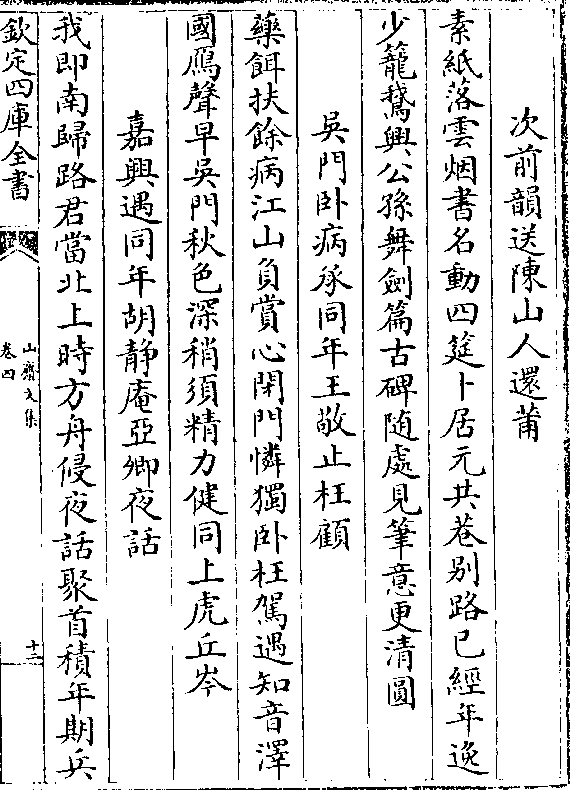 次前韻送陳山人還莆
素紙落雲烟書名動四筵卜居元共巷别路已經年逸
少籠鵞興公孫舞劍篇古碑随處見筆意更清圓
吳門卧病承同年王敬止枉顧
藥餌扶餘病江山負賞心閉門憐獨卧枉駕遇知音澤
國鴈聲早吳門秋色深稍須精力健同上虎丘岑
嘉興遇同年胡静庵亞卿夜話
我即南歸路君當北上時方舟侵夜話聚首積年期兵
欽定四庫全書
山齋文集
卷四
十二